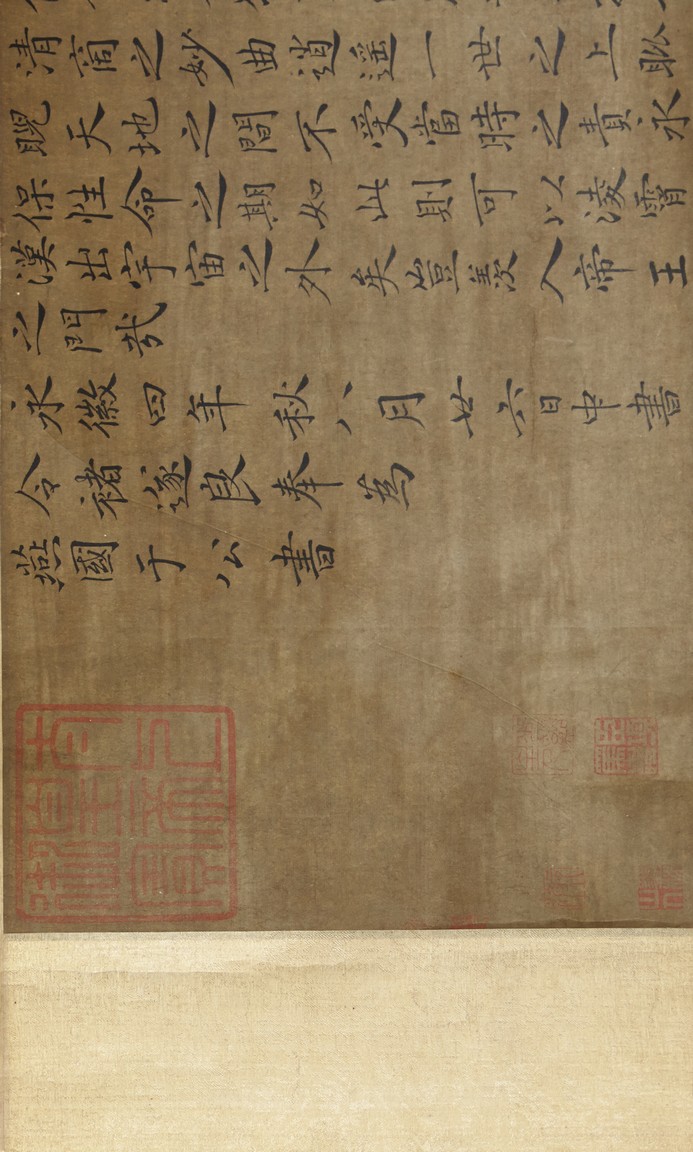 清商之妙曲逍遥一世之上睥
睨天地之間不受當時之責永
保性命之期如此則可以淩霄
漢出宇宙之外矣豈羨入帝王
之門哉
永徽四年秋八月廿六日中書
令褚遂良奉為
燕國于公書